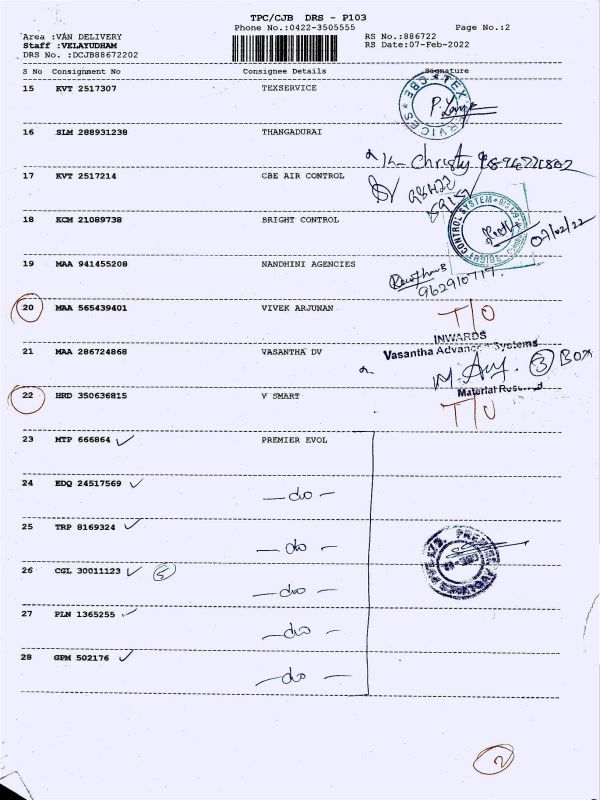 TPC/CJB DRS - P103
Phone No.:0422-3505555 Page No.:2
Area :VAN DELIVERY RS No.:886722
Staff :VELAYUDHAM RS Date:07-Feb-2022
DRS No. :DCJB88672202
S No Consignment No Consignee Details Signature
15 KVT 2517307 TEXSERVICE
16 SLM 288931238 THANGADURAI
Christy
17 KVT 2517214 CBE AIR CONTROL
18 KCM 21089738 BRIGHT CONTROL
CONTROL SYSTEM
07/02/22
19 MAA 941455208 NANDHINI AGENCIES
20 MAA 565439401 VIVEK ARJUNAN T/O
INWARDS
21 MAA 286724868 VASANTHA DV
3 BOX
Material
22 HRD 350636815 V SMART T/O
23 MTP 666864 PREMIER EVOL
24 EDQ 24517569 —do—
25 TRP 8169324 —do—
26 CGL 30011123 5 —do—
27 PLN 1365255 —do—
28 GPM 502176 —do—
2